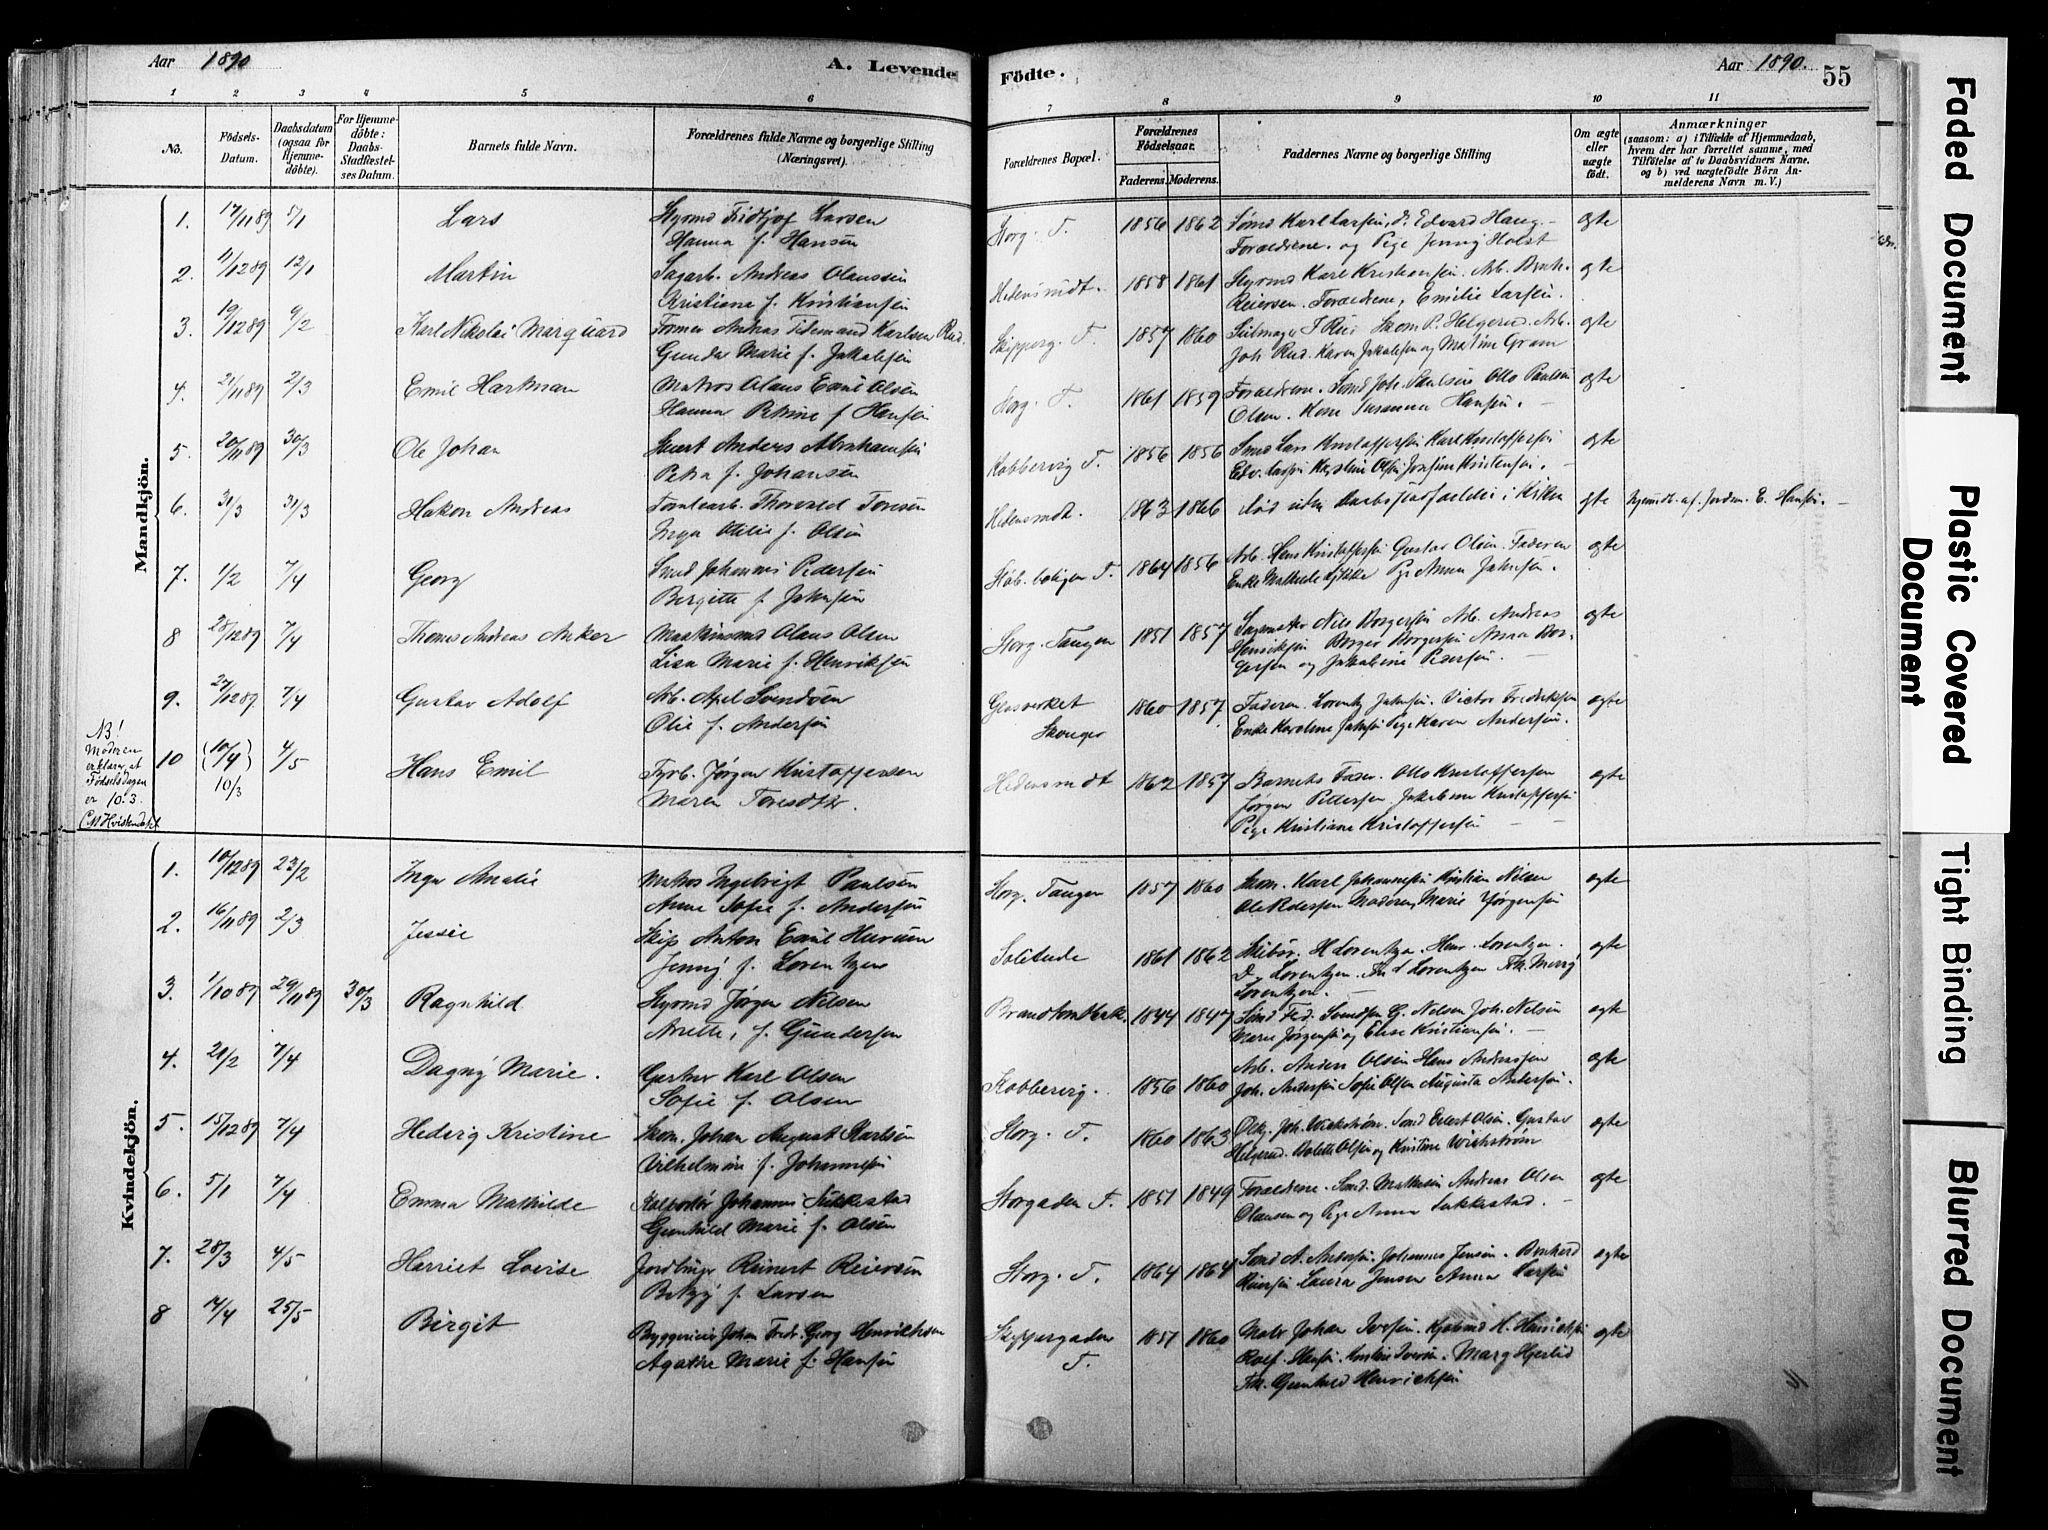 Aar 1890
A. Levende
Födte.
Aar 1890.
55
1 2 3 4 5 6 7 8 9 10 11
No.
Födsels-Datum.
Daabsdatum (ogsaa for Hjemmedöbte).
For Hjemmedöbte: Daabs-Stadfæstelses Datum.
Barnets fulde Navn.
Forældrenes fulde Navne og borgerlige Stilling (Næringsvei).
Forældrenes Bopæl.
Forældrenes Födselsaar.
Faderens. Moderens.
Faddernes Navne og borgerlige Stilling
Om ægte eller uægte födt.
Anmærkninger
(saasom: a) i Tilfælde af Hjemmedaab, hvem der har forrettet samme, med Tilföielse af to Daabsvidners Navne, og b) ved uægtefödte Börn Anmelderens Navn m. V.)
Mandkjön.
1. 17/11 89 5/1 Lars Styrmd Fridtjof Larsen
Hanna f. Hansen
Storg. T. 1856 1862 Sømd Karl Larsen, Edvard Haug
Forældrene og Pige Jenny Holst ægte
2. 11/12 89 12/1 Martin Sagarb. Andreas Olaussen
Kristiane f. Kristiansen
Hedensmdt. 1858 1861 Styrmd Karl Kristiansen. Arb. Bernh.
Reiersen. Forældrene, Emilie Larsen. ægte
3. 19/12 89 9/2 Karl Nikolai Marquard Former Andreas Tidemand Karlsen Rud.
Gunda Marie f. Jakobsen
Skipperg. T. 1857 1860 Seilmager Skom. P. Helgerud. Arb.
Joh. Rud. Karen Jakobsen og Martine Gram ægte
4. 21/11 89 2/3 Emil Hartman Matros Olaus Emil Olsen
Hanna Petrine f. Hansen
Storg. T. 1861 1859 Forældrene. Sømd Joh. Paulsen Otto Paulsen
Olsen. Kone Susanna Hansen. ægte
5. 20/11 89 30/3 Ole Johan Anders Abrahamsen
Petra f. Johansen
Kobbervig T. 1856 1856 Smed Lars Kristoffersen Karl Kristoffersen
Edv. Larsen Karoline Olsen Josefine Kristensen. ægte
6. 31/3 31/3 Hakon Andreas Tomtearb. Thorvald Toresen
Inga Otilie f. Olsen
Hedensmdt. 1863 1866 død uden Daabsstadfæstelse i Kirken ægte hjemdt. af Jordm. E. Hansen.
7. 1/2 7/4 Georg Smed Johannes Pedersen
Bergitte f. Jahnsen
Kob. boligen T. 1864 1856 Arb. Hans Kristoffersen Gustav Olsen. Faderen
Enke Mathilde Pige Anna Jahnsen. ægte
8 28/12 89 7/4 Thomas Andreas Anker Maskinsmd Olaus Olsen
Lisa Marie f. Henriksen
Storg. Tangen 1851 1857 Sagmester Nils Borgersen Arb. Andreas
Henriksen Borger Borgersen Anna Borgersen og Jakobine Pedersen. ægte
9. 27/12 89 7/4 Gustav Adolf Arb. Axel Svendsen
Olie f. Andersen
Glasverket
Skouger 1860 1857 Faderen. Lorentz Jahnsen. Victor Fredriksen
Enke Karoline Jahnsen Pige Karen Andersen. ægte
NB!
Moderen erklærer, at Fødselsdagen er 10.3.
10 (10/4) 10/3 4/5 Hans Emil Fyrb. Jørgen Kristoffersen
Maren Toresdtr.
Hedensmdt 1862 1857 Barnets Fader. Otto Kristoffersen
Jørgen Pettersen Jakobine Kristoffersen
Pige Kristiane Kristoffersen ægte
Kvindekjön.
1. 10/12 89 23/2 Inga Amalie Matros Ingebrigt Paulsen
Anne Sofie f. Andersen
Storg. Tangen 1857 1860 Skom. Karl Johannesen Kristian Nilsen
Ole Pedersen Moderen, Marie Jørgensen ægte
2. 16/11 89 2/3 Jessie Skip Anton Emil Hurum
Jenny f. Lorentzen
Solitude 1861 1862 Skibsr. H Lorentzen. Henr. Lorentzen.
D. Lorentzen. Lorentzen Frk. Lorentzen. ægte
3. 1/10 89 29/11 89 30/3 Ragnhild Styrmd Jørgen Nilsen
Anette, f. Gundersen
1844 1847 Sømd Fred. Svendsen G. Nilsen Joh. Nilsen
Marie Jørgensen og Elise Kristiansen. ægte
4. 21/2 7/4 Dagny Marie. Gartner Karl Olsen
Sofie f. Olsen
Kobbervig. 1856 1860 Arb. Anders Olsen Hans Andersen
Joh. Andersen Sofie Olsen Augusta Andersen. ægte
5. 15/12 89 7/4 Hedvig Kristine Skom. Johan August Karlsen
Vilhelmine f. Johannesen
Storg. T. 1860 1863 Joh. Wickstrøm. Sømd Edvert Olsen. Gustav
Helgerud. Bolette Olsen og Kristine Wickstrøm ægte
6. 5/1 7/4 Emma Mathilde Johannes Sukkestad
Gunhild Marie f. Olsen
Storgaden T. 1851 1849 Forældrene. Sømd. Mathisen Andreas Olsen
Olausen og Pige Anna Sukkestad. ægte
7. 28/3 4/5 Harriet Lovise Reinert Reiersen
Betzy f. Larsen
Storg. T. 1864 1864 Sømd A. Andersen Johannes Jensen. Bernhard
Reiersen Laura Jensen Anna Larsen ægte
8 14/4 25/5 Birgit Byggmeier Johan Fredr. Georg Henrichsen
Agathe Marie f. Hansen
Skippergaden
T. 1851 1860 Johan Iversen. H. Henrichsen
Rolf Hansen. Kristine Iversen. Marg Hjerlid
Frk. Gunhild Henrichsen ægte
Faded Document
Plastic Covered Document
Tight Binding
Blurred Document